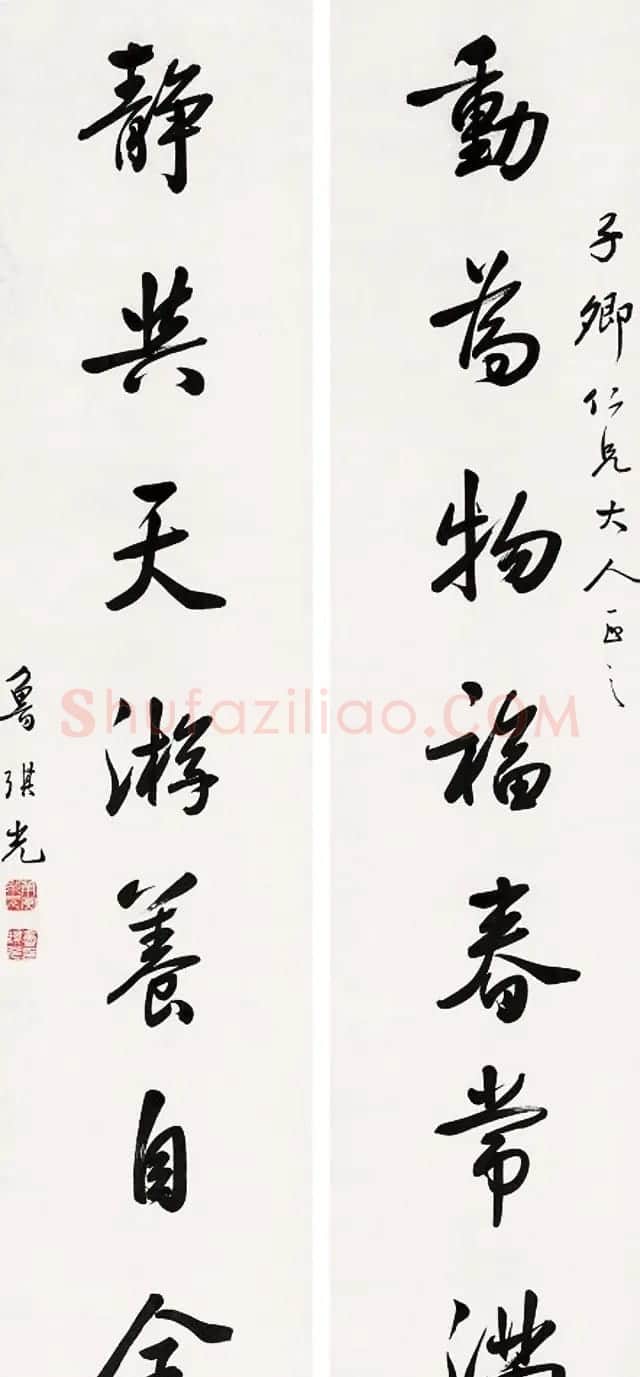 子卿仁兄大人正之
動為物福春常滿
靜與天游養自
魯琪光
Shufaziliao.COM